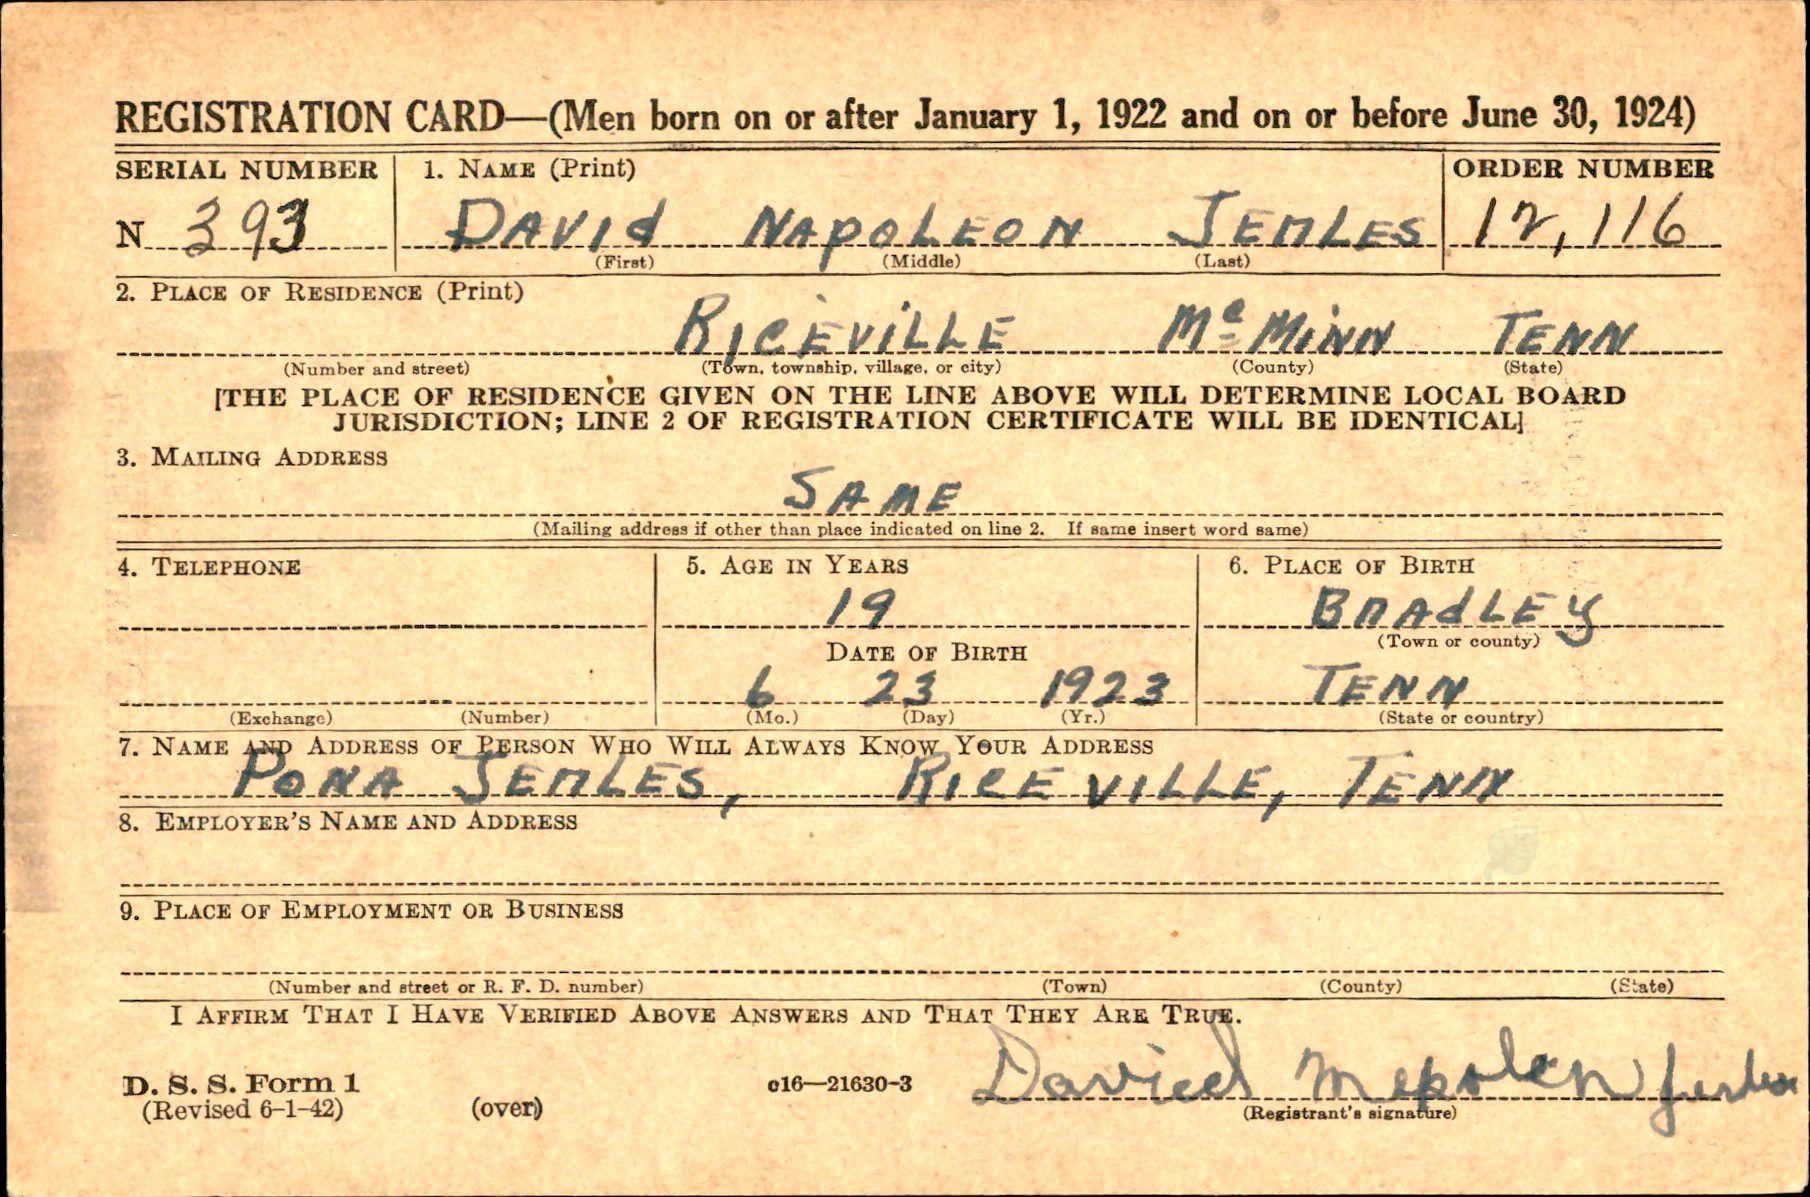 REGISTRATION CARD—(Men born on or after January 1, 1922 and on or before June 30, 1924)
SERIAL NUMBER 1. NAME (Print) ORDER NUMBER
N 393 DAVId NAPOLEON JERLES 12,116
(First) (Middle) (Last)
2. PLACE OF RESIDENCE (Print)
RICEVILLE McMINN TENN
(Number and street) (Town, township, village, or city) (County) (State)
[THE PLACE OF RESIDENCE GIVEN ON THE LINE ABOVE WILL DETERMINE LOCAL BOARD
JURISDICTION; LINE 2 OF REGISTRATION CERTIFICATE WILL BE IDENTICAL]
3. MAILING ADDRESS
SAME
(Mailing address if other than place indicated on line 2. If same insert word same)
4. TELEPHONE 5. AGE IN YEARS 6. PLACE OF BIRTH
19 BRAdLEY
(Town or county)
DATE OF BIRTH
6 23 1923 TENN
(Exchange) (Number) (Mo.) (Day) (Yr.) (State or country)
7. NAME AND ADDRESS OF PERSON WHO WILL ALWAYS KNOW YOUR ADDRESS
PONA JERLES, RICEVILLE, TENN
8. EMPLOYER'S NAME AND ADDRESS
9. PLACE OF EMPLOYMENT OR BUSINESS
(Number and street or R. F. D. number) (Town) (County) (State)
I AFFIRM THAT I HAVE VERIFIED ABOVE ANSWERS AND THAT THEY ARE TRUE.
D. S. S. Form 1 c16—21630-3 Davied Mepolen Jerles
(Revised 6-1-42) (over) (Registrant's signature)